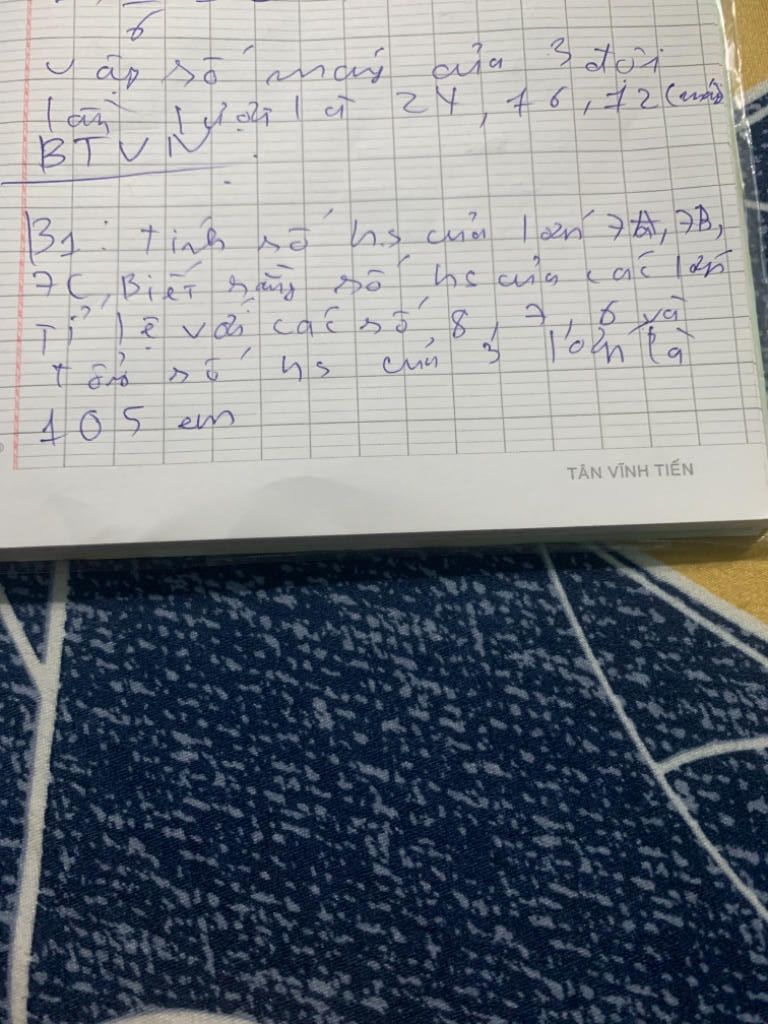 6
Vập số máy của 3 đội
lần lượt là 24, 16, 12 (máy)
BTVN:
B1: Tính số hs của lớp 7A, 7B,
7C, Biết rằng số hs của các lớp
Tỉ lệ với các số 8, 7, 6 và
tổng số hs của 3 lớp là
105 em
TÂN VĨNH TIẾN